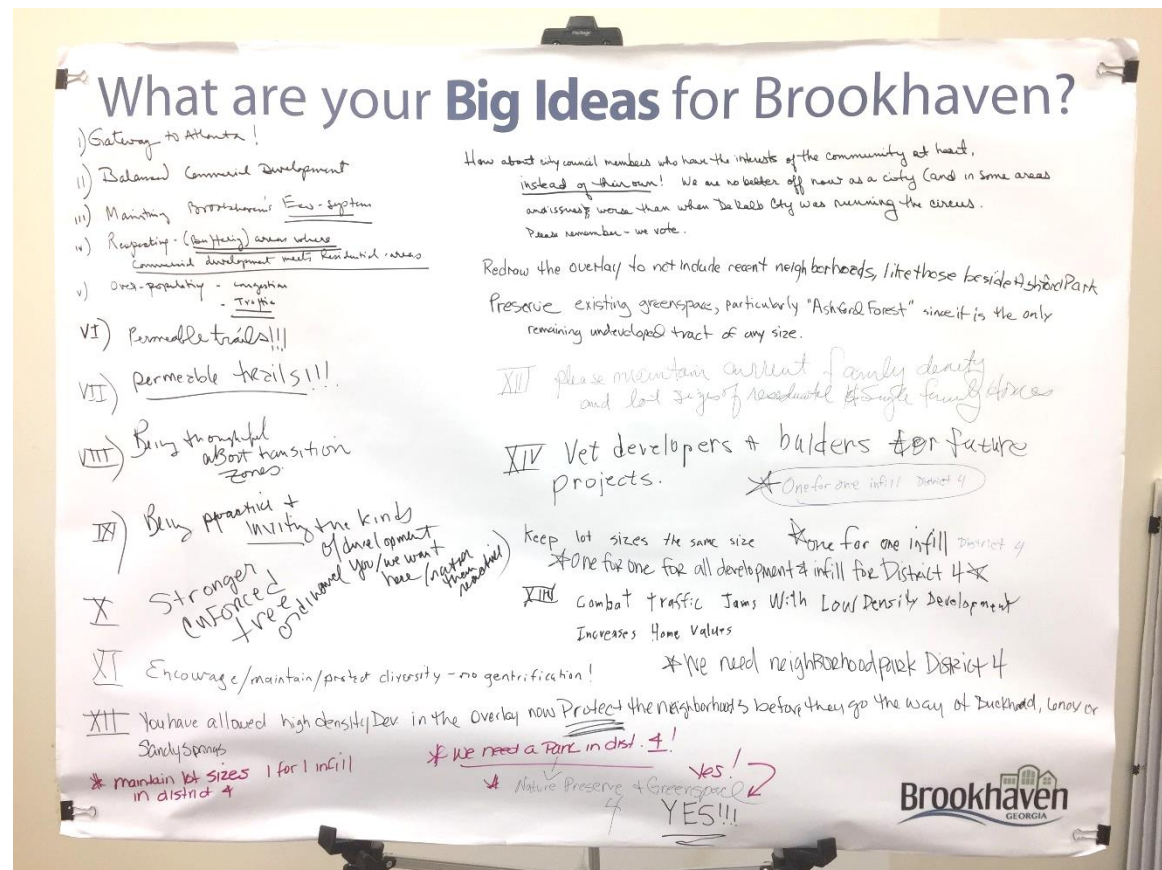 What are your Big Ideas for Brookhaven?
i) Gateway to Atlanta!
ii) Balanced Commercial Development
iii) Brookhaven's Eco-system
iv) Respecting - (Buffering) areas where
commercial development meets Residential areas
v) Over-populating - congestion
- Traffic
VI) Permeable trails!!!
VII) permeable trails!!!
VIII) Being thoughtful
about transition
zones.
IX) Being proactive &
inviting the kinds
of development
you/we want
here (rather
than
reactive)
X Stronger
enforced
tree
ordinance
XI Encourage/maintain/protect diversity - no gentrification!
XII You have allowed high density Dev in the Overlay now Protect the neighborhoods before they go the way of Buckhead, Lenox or
Sandy Springs
* maintain lot sizes 1 for 1 infill
in district 4
How about city council members who have the interests of the community at heart,
instead of their own! We are no better off now as a city (and in some areas
and issues, worse than when DeKalb Cty was running the circus.
Please remember - we vote.
Redraw the overlay to not include recent neighborhoods, like those beside Ashford Park
Preserve existing greenspace, particularly "Ashford Forest" since it is the only
remaining undeveloped tract of any size.
XIII please maintain current family density
and lot sizes of residential & single family homes
XIV Vet developers & builders for future
projects.
* One for one infill District 4
Keep lot sizes the same size
* one for one infill District 4
* One for one for all development & infill for District 4 *
Combat Traffic Jams With Low Density Development
Increases Home Values
* We need neighborhood park District 4
* We need a Park in dist. 4!
* Nature Preserve & Greenspace
4
Yes!
YES!!!
Brookhaven
GEORGIA